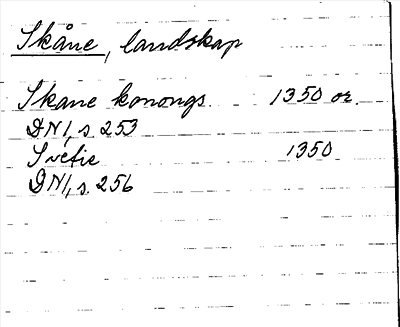 Skåne, landskap
Skane konongs. 1350 or.
DN I, s. 253
Svetie 1350
DN I, s. 256